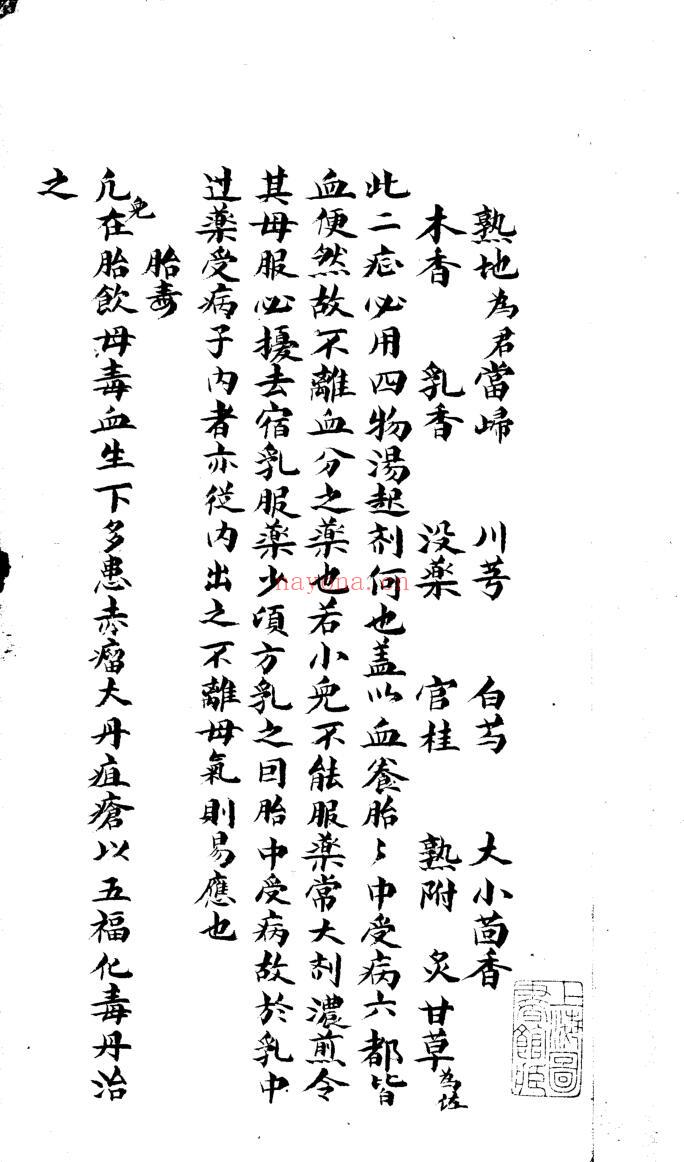 熟地為君當歸 川芎 白芍 大小茴香
木香 乳香 没藥 官桂 熟附 炙甘草為佐
此二症必用四物湯起剂何也蓋以血養胎〻中受病六都皆
血便然故不離血分之藥也若小兒不能服藥常大剂濃煎令
其母服必擾去宿乳服藥少頃方乳之因胎中受病故於乳中
过藥受病子内者亦從内出之不離母氣則易應也
胎毒
凡兒在胎飲母毒血生下多患赤瘤大丹疽瘡以五福化毒丹治
之
上海圖書館
nayona.cn